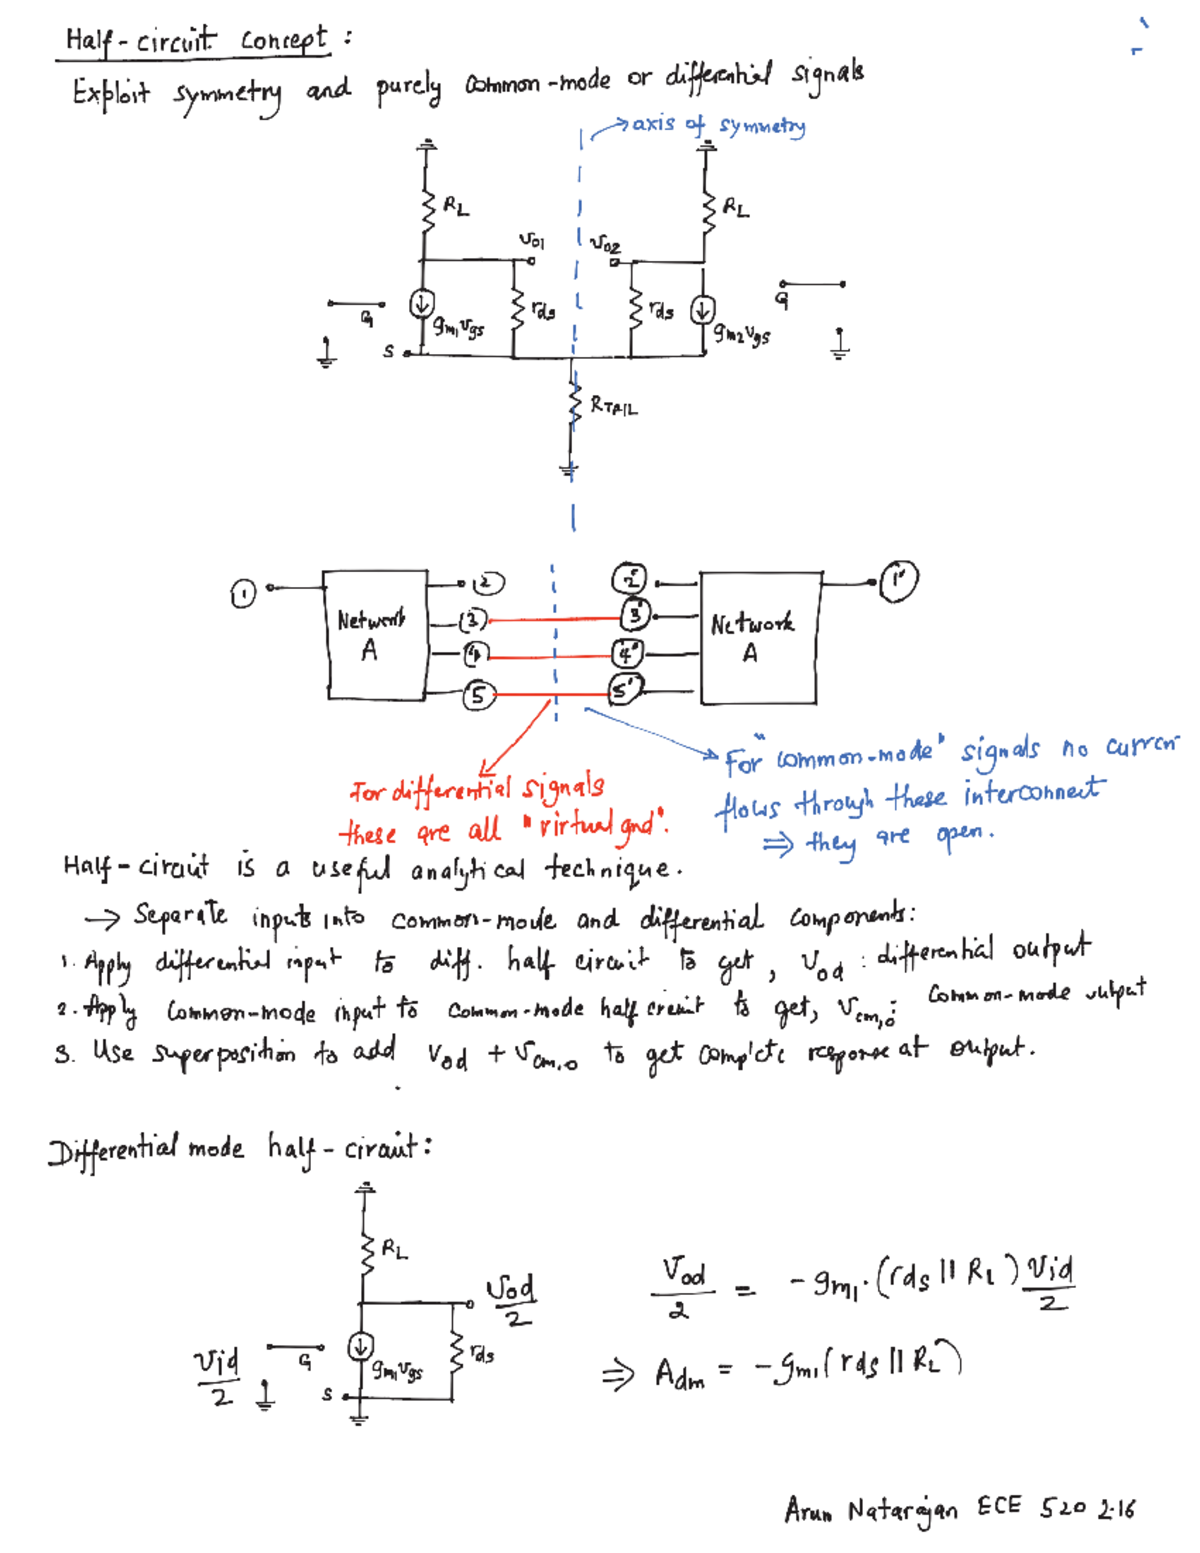 Half-circuit concept :
Exploit symmetry and purely common-mode or differential signals
axis of symmetry
RL
RL
vo1
vo2
G
gm1vgs
rds
rds
gm2vgs
G
S
RTAIL
1
2
2'
1'
Network
A
3
3'
Network
A
4
4'
5
5'
For differential signals
these are all "virtual gnd".
For "common-mode" signals no curren
flows through these interconnect
⇒ they are open.
Half-circuit is a useful analytical technique.
→ Separate inputs into common-mode and differential components:
1. Apply differential input to diff. half circuit to get, vod : differential output
2. Apply common-mode input to common-mode half circuit to get, vcm,o: common-mode output
3. Use superposition to add vod + vcm,o to get complete response at output.
Differential mode half-circuit:
RL
vod/2
vid/2
G
gm1vgs
rds
S
vod/2 = -gm1.(rds || RL) vid/2
⇒ Adm = -gm1(rds || RL)
Arun Natarajan ECE 520 2.16